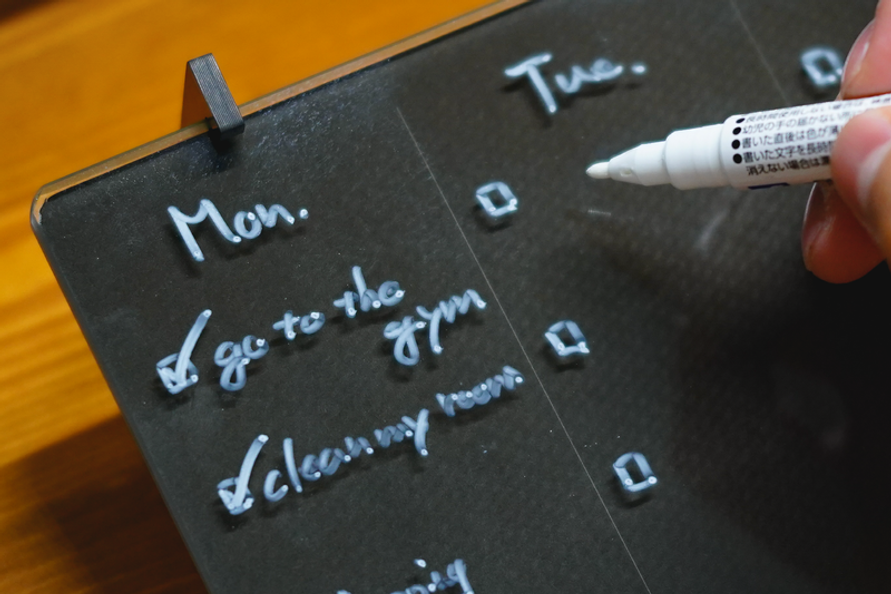 Mon.
go to the
gym
clean my room
Tue.
幼児の手の届かない
書いた直後は色が
書いた文字を長時
消えない場合は